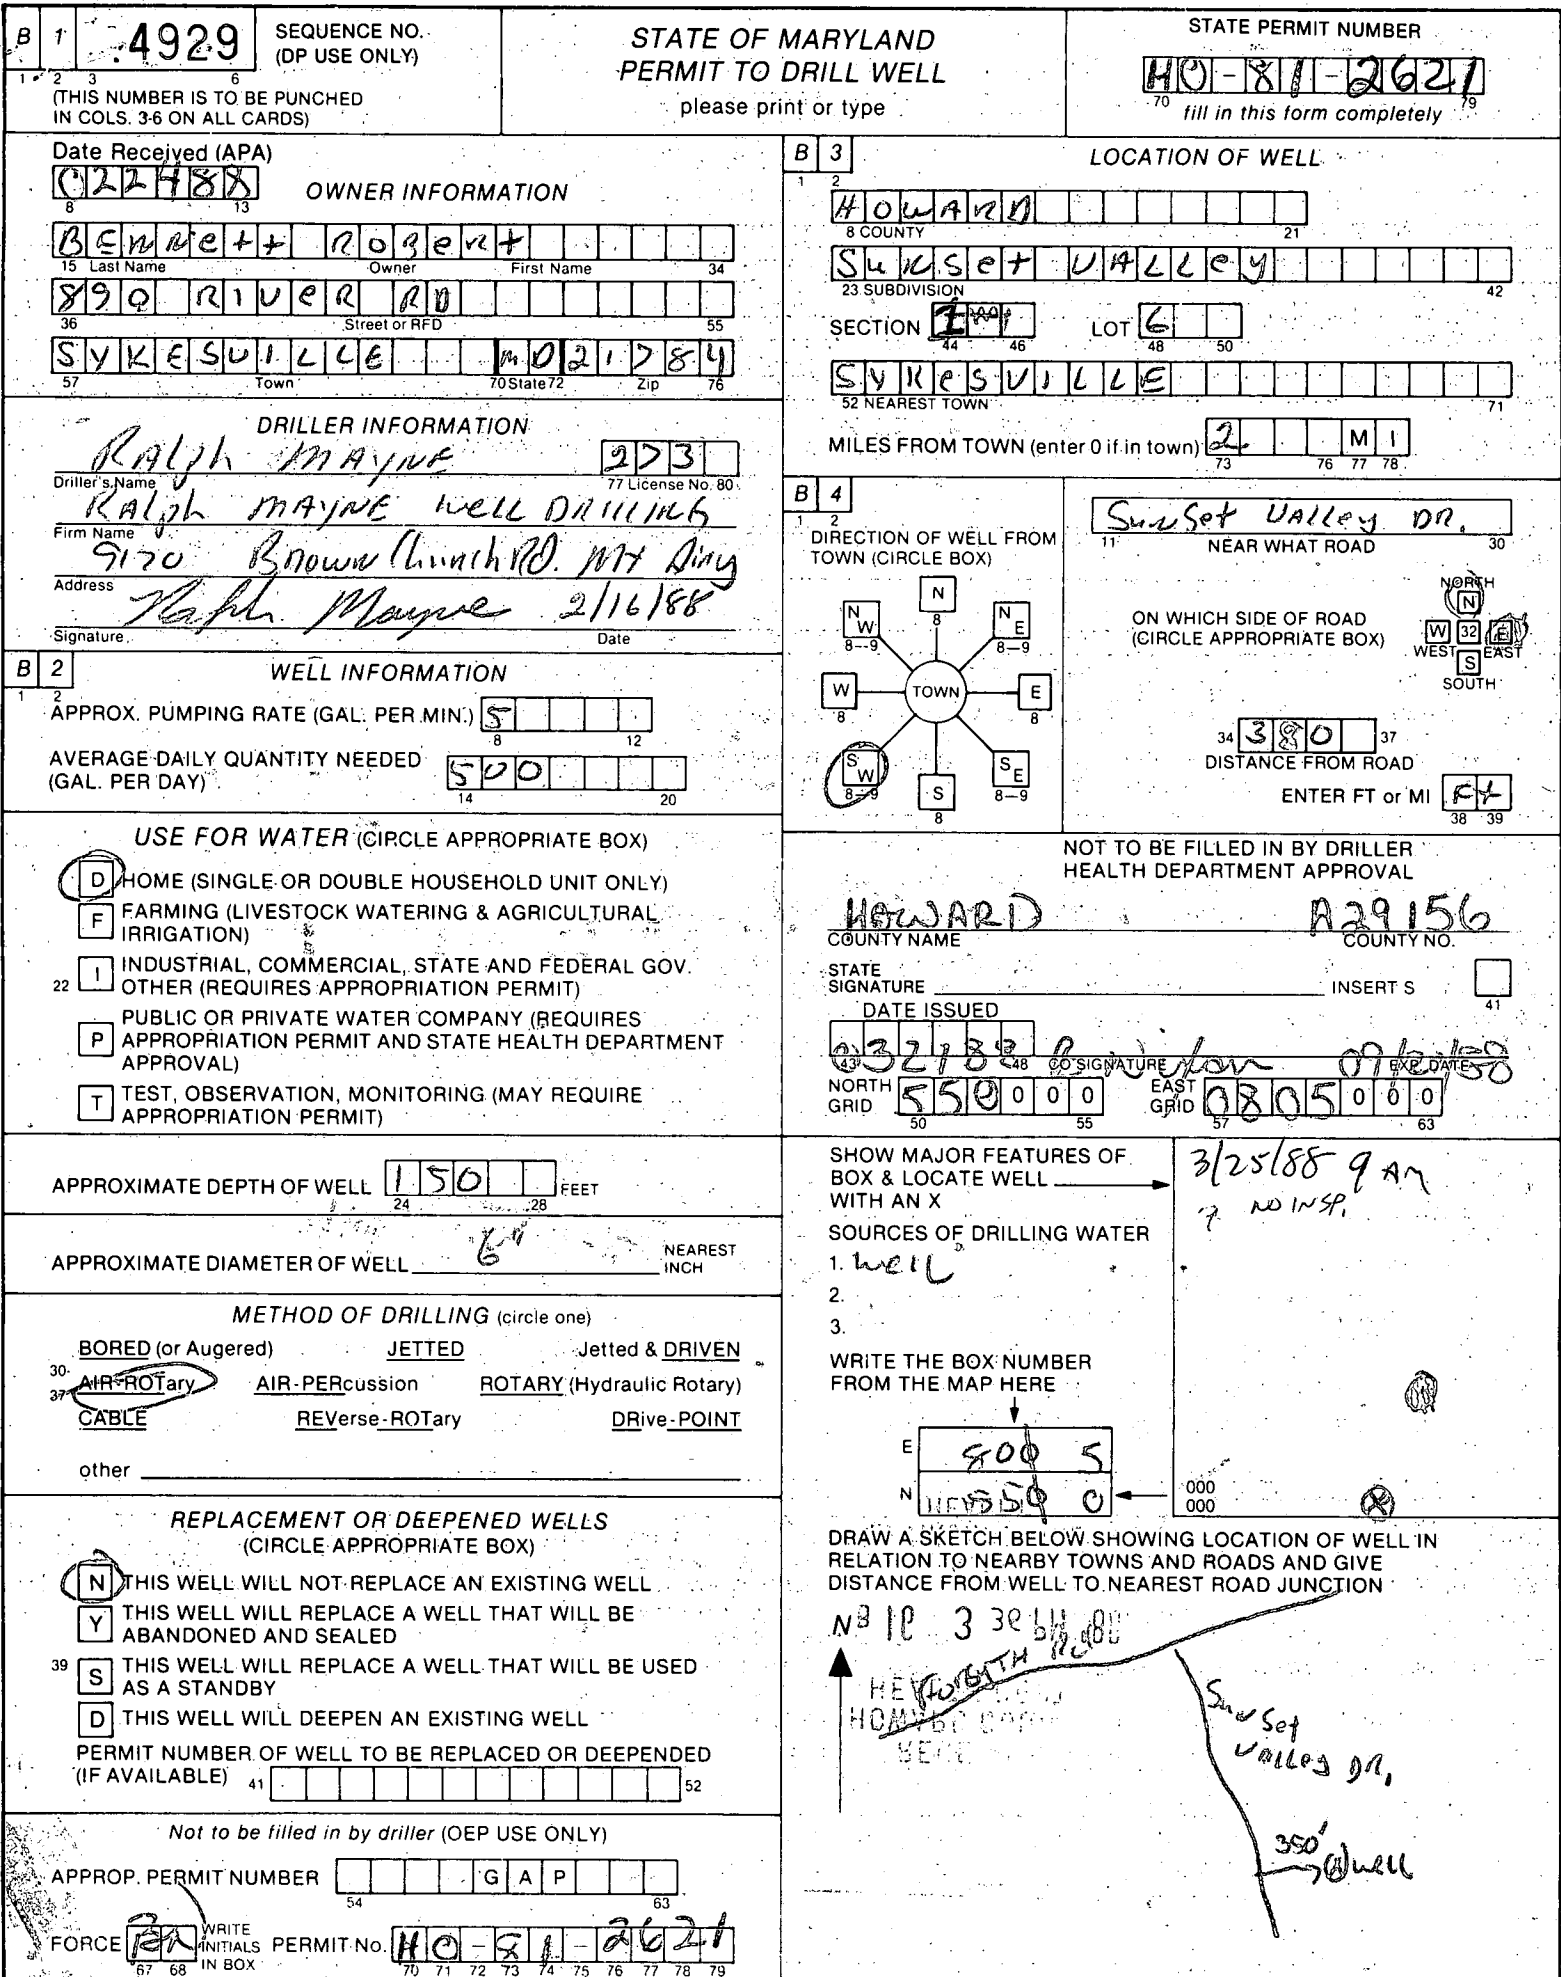 B 1 4929 SEQUENCE NO. (DP USE ONLY)
1 2 3 6
(THIS NUMBER IS TO BE PUNCHED
IN COLS. 3-6 ON ALL CARDS)
STATE OF MARYLAND
PERMIT TO DRILL WELL
please print or type
STATE PERMIT NUMBER
HO-81-2621
70 79
fill in this form completely
Date Received (APA)
022488
8 13
OWNER INFORMATION
BENNett RoBert
15 Last Name Owner First Name 34
890 RIVeR RD
36 Street or RFD 55
SYKESVILLE MD 21784
57 Town 70 State 72 Zip 76
DRILLER INFORMATION
RALph MAYNE 273
Driller's Name 77 License No. 80
RALph MAYNE WELL DRILLING
Firm Name
9170 Brown Church RD. Mt Airy
Address
Ralph Mayne 2/16/88
Signature Date
B 2 WELL INFORMATION
1 2
APPROX. PUMPING RATE (GAL. PER MIN.) 5
8 12
AVERAGE DAILY QUANTITY NEEDED
(GAL. PER DAY) 500
14 20
USE FOR WATER (CIRCLE APPROPRIATE BOX)
D HOME (SINGLE OR DOUBLE HOUSEHOLD UNIT ONLY)
F FARMING (LIVESTOCK WATERING & AGRICULTURAL
IRRIGATION)
22 I INDUSTRIAL, COMMERCIAL, STATE AND FEDERAL GOV.
OTHER (REQUIRES APPROPRIATION PERMIT)
P PUBLIC OR PRIVATE WATER COMPANY (REQUIRES
APPROPRIATION PERMIT AND STATE HEALTH DEPARTMENT
APPROVAL)
T TEST, OBSERVATION, MONITORING (MAY REQUIRE
APPROPRIATION PERMIT)
APPROXIMATE DEPTH OF WELL 150 FEET
24 28
APPROXIMATE DIAMETER OF WELL 6" NEAREST
INCH
METHOD OF DRILLING (circle one)
BORED (or Augered) JETTED Jetted & DRIVEN
30-
37 AIR-ROTary AIR-PERcussion ROTARY (Hydraulic Rotary)
CABLE REVerse-ROTary DRive-POINT
other
REPLACEMENT OR DEEPENED WELLS
(CIRCLE APPROPRIATE BOX)
N THIS WELL WILL NOT REPLACE AN EXISTING WELL
Y THIS WELL WILL REPLACE A WELL THAT WILL BE
ABANDONED AND SEALED
39 S THIS WELL WILL REPLACE A WELL THAT WILL BE USED
AS A STANDBY
D THIS WELL WILL DEEPEN AN EXISTING WELL
PERMIT NUMBER OF WELL TO BE REPLACED OR DEEPENDED
(IF AVAILABLE) 41 52
Not to be filled in by driller (OEP USE ONLY)
APPROP. PERMIT NUMBER GAP
54 63
FORCE WRITE INITIALS IN BOX PERMIT No. HO-81-2621
67 68 70 71 72 73 74 75 76 77 78 79
B 3 LOCATION OF WELL
1 2
HOWARD
8 COUNTY 21
SuNSet VALLey
23 SUBDIVISION 42
SECTION 1 LOT 6
44 46 48 50
SYKeSVILLE
52 NEAREST TOWN 71
MILES FROM TOWN (enter 0 if in town) 2 MI
73 76 77 78
B 4
1 2
DIRECTION OF WELL FROM
TOWN (CIRCLE BOX)
N 8
NW 8-9 NE 8-9
W 8 TOWN E 8
SW 8-9 SE 8-9
S 8
SunSet VALLey DR.
11 NEAR WHAT ROAD 30
ON WHICH SIDE OF ROAD
(CIRCLE APPROPRIATE BOX)
NORTH
N
W 32 E
WEST EAST
S
SOUTH
34 380 37
DISTANCE FROM ROAD
ENTER FT or MI Ft
38 39
NOT TO BE FILLED IN BY DRILLER
HEALTH DEPARTMENT APPROVAL
HOWARD A29156
COUNTY NAME COUNTY NO.
STATE
SIGNATURE INSERT S
41
DATE ISSUED
43 48 CO SIGNATURE EXP. DATE
NORTH GRID 550000 EAST GRID 0805000
50 55 57 63
SHOW MAJOR FEATURES OF
BOX & LOCATE WELL
WITH AN X
3/25/88 9 AM
? NO INSP.
SOURCES OF DRILLING WATER
1. well
2.
3.
WRITE THE BOX NUMBER
FROM THE MAP HERE
E 800 5
N 550 0
000
000
DRAW A SKETCH BELOW SHOWING LOCATION OF WELL IN
RELATION TO NEARBY TOWNS AND ROADS AND GIVE
DISTANCE FROM WELL TO NEAREST ROAD JUNCTION
N
Forsyth Rd
SunSet
Valley DR.
350'
well